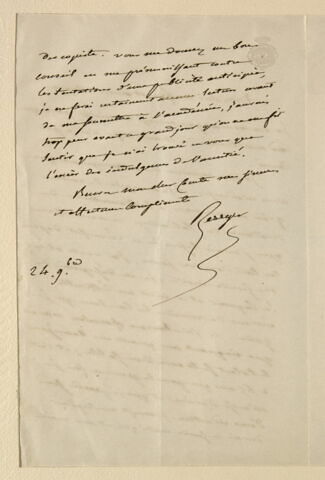 des coquets. vous me donnez un bon
conseil en me prémunissant contre
les tentations d'une publicité anticipée,
je ne ferai certainement aucune lecture avant
de me soumettre à l'académie, j'aurais
trop peur avant ce grand jour qu'on ne me fît
sentir que je n'ai trouvé en vous que
l'excès des indulgences de l'amitié.
Recevez mon cher Comte mes sincères
et affectueux compliments
Berryer
24. 9bre